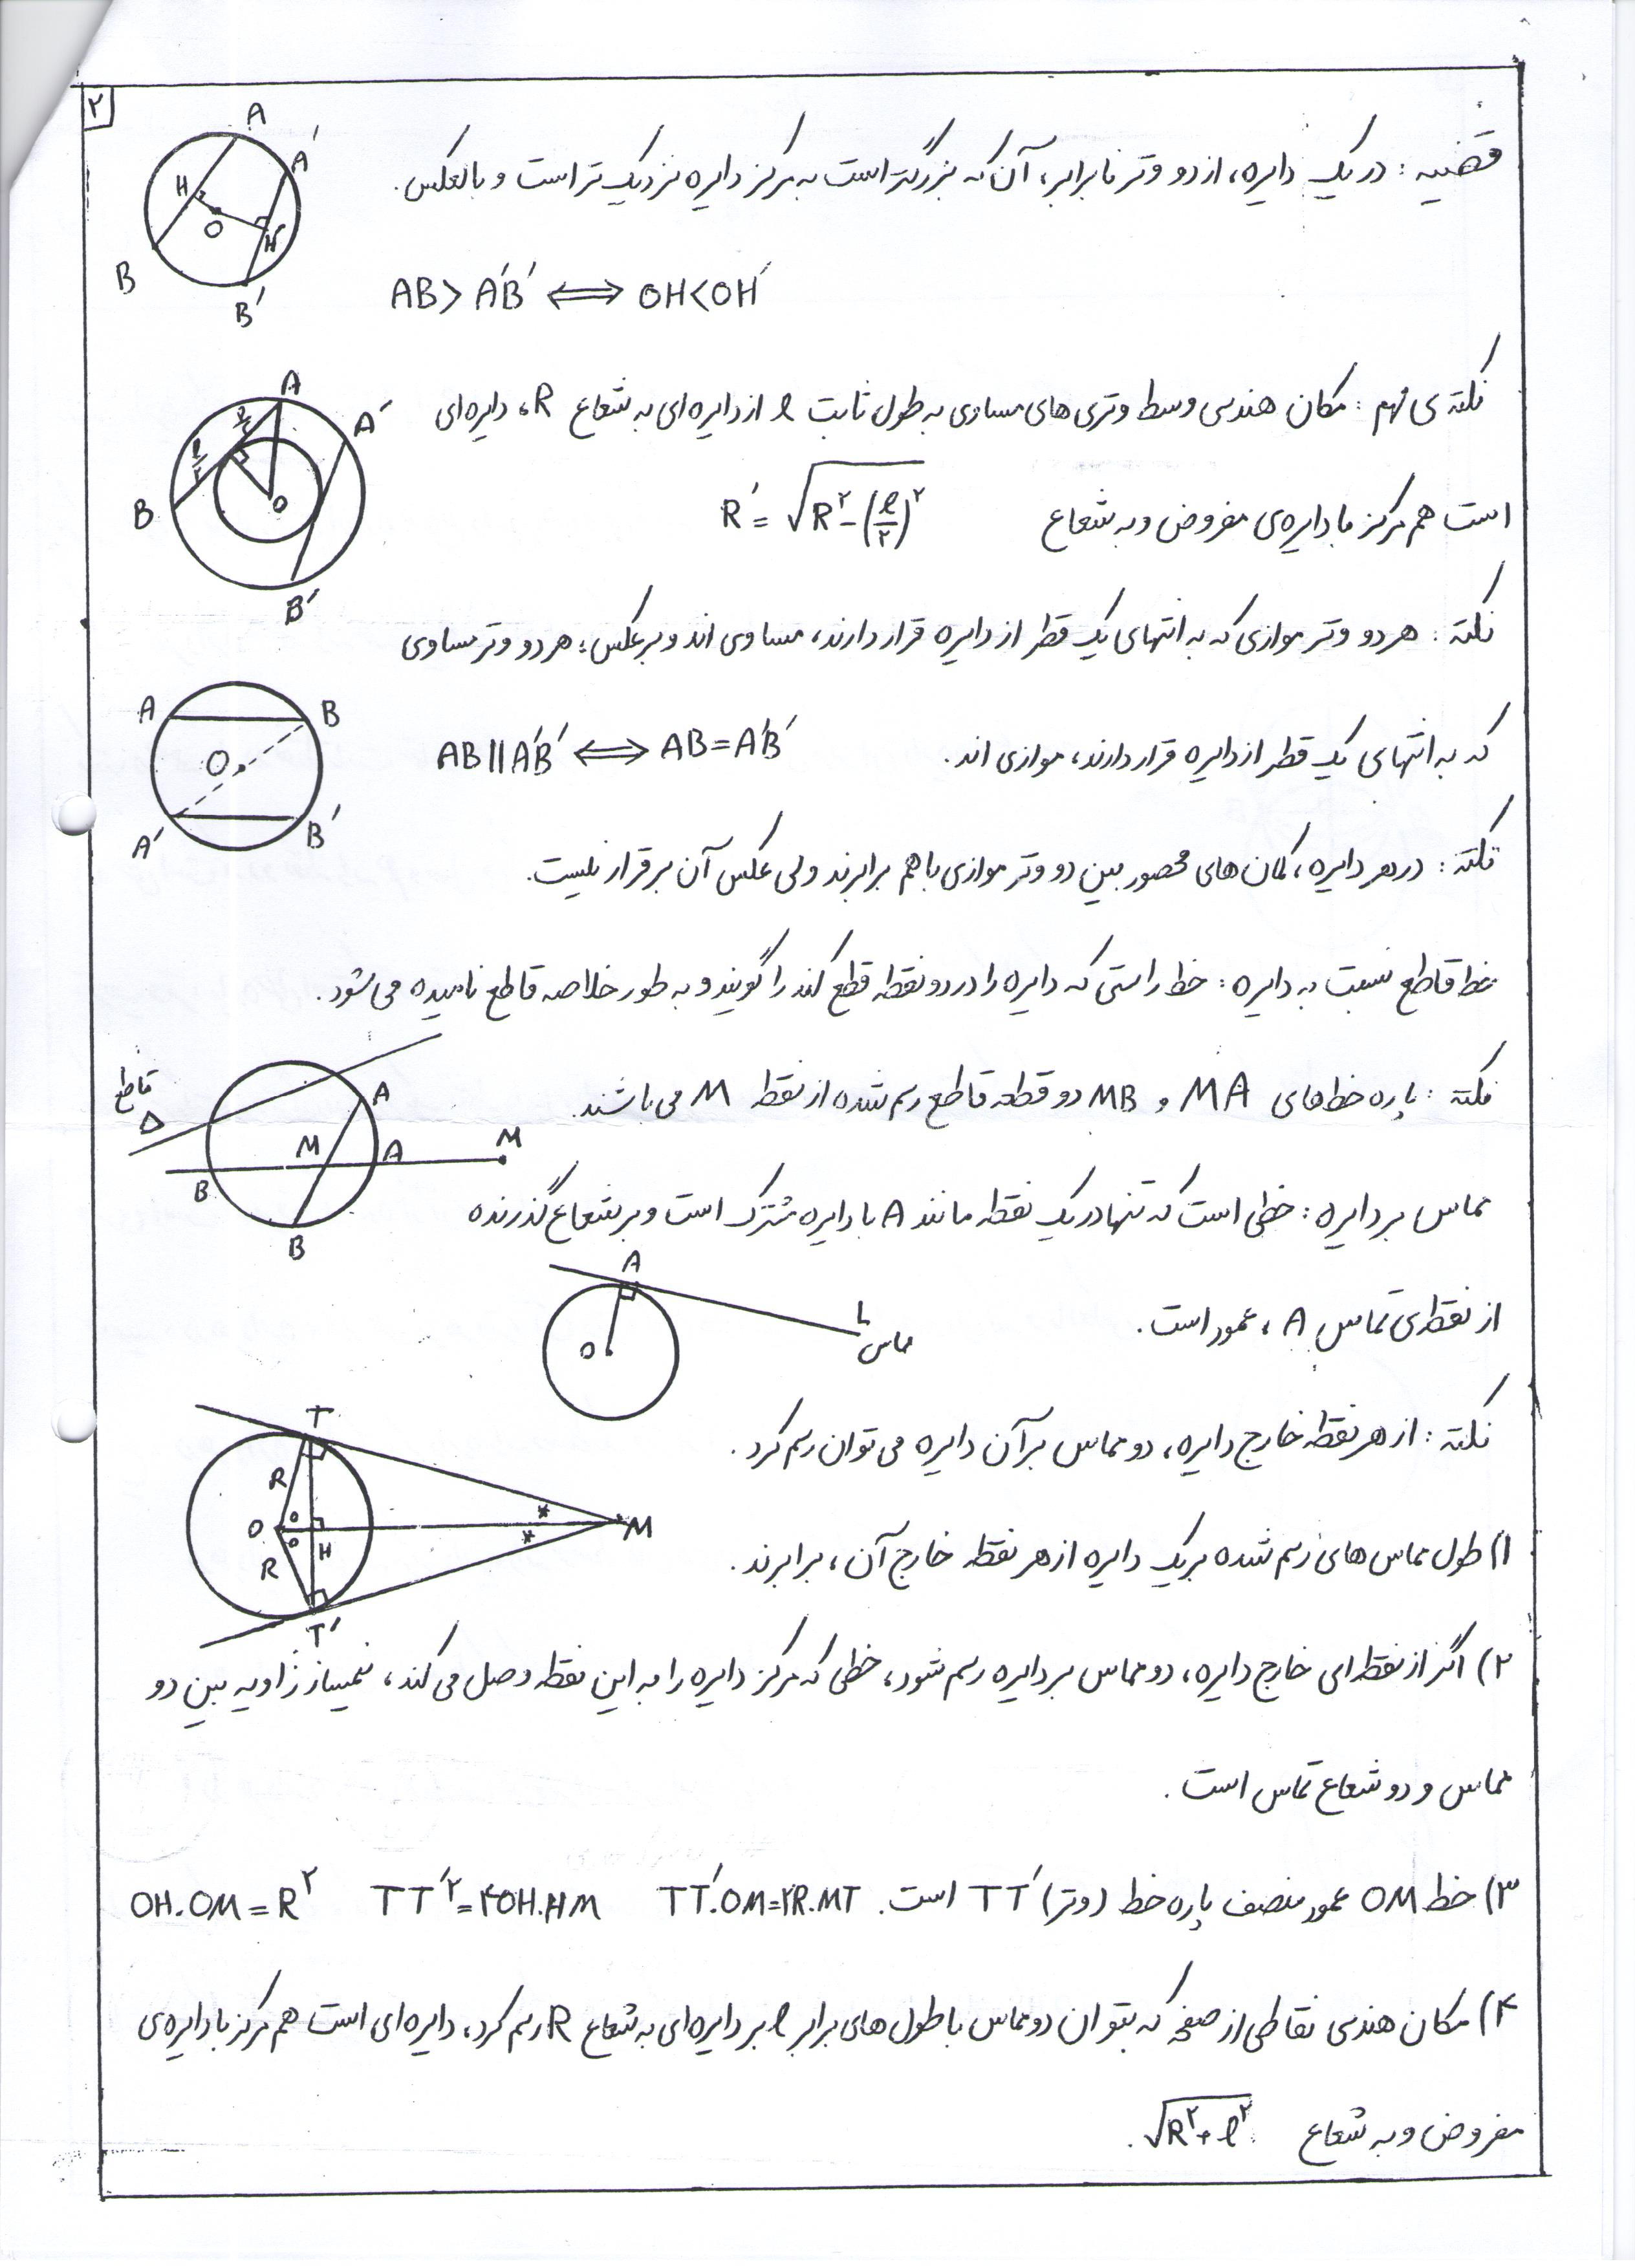 ۲
قضیه : در یک دایره، از دو وتر نابرابر، آن که بزرگتر است به مرکز دایره نزدیک تر است و بالعکس.
A A′ H O H′ B B′
AB > A′B′ ⟺ OH < OH′
نکته ی مهم : مکان هندسی وسط وتری های مساوی به طول ثابت ℓ از دایره ای به شعاع R، دایره ای
A A′ ℓ/۲ ℓ/۲ B O B′
است هم مرکز با دایره ی مفروض و به شعاع R′ = √(R^۲ - (ℓ/۲)^۲)
نکته : هر دو وتر موازی که به انتهای یک قطر از دایره قرار دارند، مساوی اند و برعکس؛ هر دو وتر مساوی
که به انتهای یک قطر از دایره قرار دارند، موازی اند. AB || A′B′ ⟺ AB = A′B′
A B O A′ B′
نکته : در هر دایره، کمان های محصور بین دو وتر موازی با هم برابرند ولی عکس آن برقرار نیست.
خط قاطع نسبت به دایره : خط راستی که دایره را در دو نقطه قطع کند را گویند و به طور خلاصه قاطع نامیده می شود.
قاطع Δ A M A M B B
نکته : پاره خط های MA و MB دو قطعه قاطع رسم شده از نقطه M می باشند.
مماس بر دایره : خطی است که تنها در یک نقطه مانند A با دایره مشترک است و بر شعاع گذرنده
از نقطه ی تماس A، عمود است.
A O L مماس
نکته : از هر نقطه خارج دایره، دو مماس بر آن دایره می توان رسم کرد.
T R O H R T′ M
۱) طول مماس های رسم شده بر یک دایره از هر نقطه خارج آن، برابرند.
۲) اگر از نقطه ای خارج دایره، دو مماس بر دایره رسم شود، خطی که مرکز دایره را به این نقطه وصل می کند، نیمساز زاویه بین دو
مماس و دو شعاع تماس است.
۳) خط OM عمود منصف پاره خط (وتر) TT′ است. TT′.OM=۲R.MT TT′^۲=۴OH.HM OH.OM=R^۲
۴) مکان هندسی نقاطی از صفحه که بتوان دو مماس با طول های برابر ℓ بر دایره ای به شعاع R رسم کرد، دایره ای است هم مرکز با دایره ی
مفروض و به شعاع √(R^۲+ℓ^۲) .